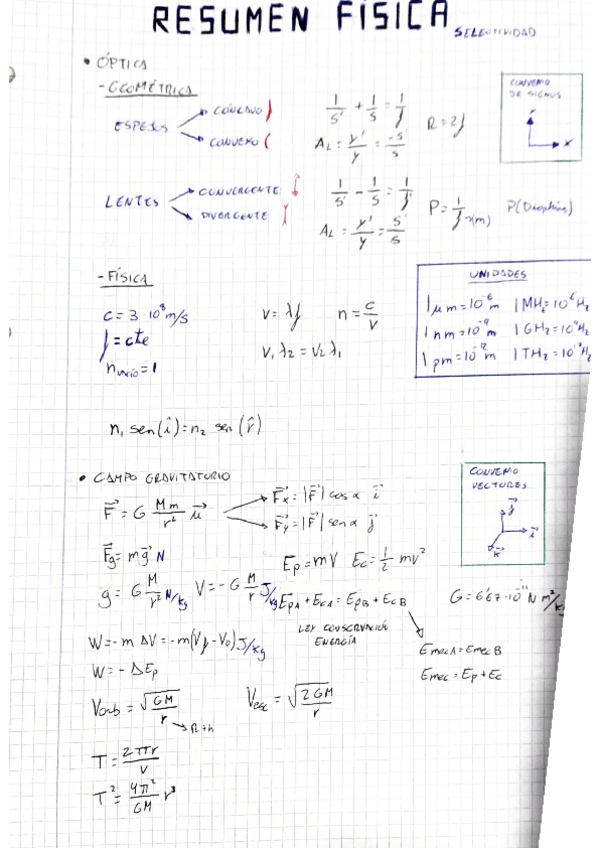 RESUMEN FÍSICA
SELECTIVIDAD
• ÓPTICA
- GEOMÉTRICA
ESPEJOS
CÓNCAVO )
CONVEXO (
1/s' + 1/s = 1/f
R = 2f
A_L = y'/y = -s'/s
CONVENIO DE SIGNOS
Y
X
LENTES
CONVERGENTE
DIVERGENTE
1/s' - 1/s = 1/f'
A_L = y'/y = s'/s
P = 1/f' → (m)
P (Dioptrías)
- FÍSICA
c = 3·10⁸ m/s
f = cte
n vacío = 1
v = λf
n = c/v
v₁ λ₂ = v₂ λ₁
UNIDADES
1 μm = 10⁻⁶ m 1 MHz = 10⁶ Hz
1 nm = 10⁻⁹ m 1 GHz = 10⁹ Hz
1 pm = 10⁻¹² m 1 THz = 10¹² Hz
n₁ sen(î) = n₂ sen(r̂)
• CAMPO GRAVITATORIO
F⃗ = G Mm/r² u⃗
F⃗x = |F⃗| cos α i⃗
F⃗y = |F⃗| sen α j⃗
CONVENIO VECTORES
j⃗
i⃗
k⃗
F⃗g = mg⃗ N
Ep = mV Ec = 1/2 mv²
g = G M/r² N/kg
V = -G M/r J/kg
EpA + EcA = EpB + EcB
G = 6'67·10⁻¹¹ N m²/kg
LEY CONSERVACIÓN ENERGÍA
EmecA = EmecB
Emec = Ep + Ec
W = -m ΔV = -m(Vf - V0) J/kg
W = -ΔEp
Vorb = √(GM/r)
→ R+h
Vesc = √(2GM/r)
T = 2πr/v
T² = 4π²/GM r³